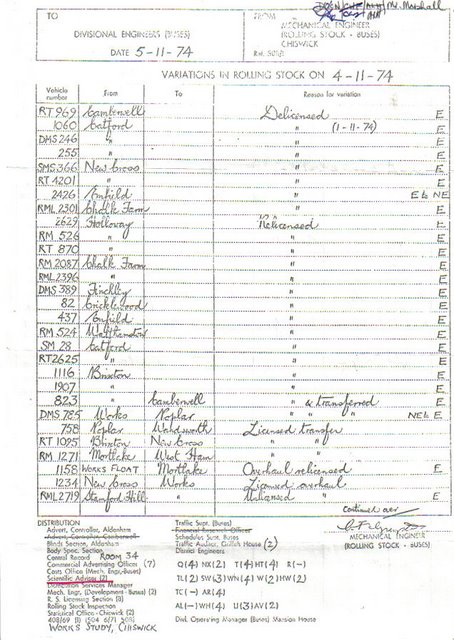 TO
DIVISIONAL ENGINEERS (BUSES)
DATE 5-11-74
FROM Mr. Marshall
MECHANICAL ENGINEER
(ROLLING STOCK - BUSES)
CHISWICK
VARIATIONS IN ROLLING STOCK ON 4-11-74
Vehicle number From To Reason for variation
RT 969 Camberwell Delicensed E
1060 Catford " (1-11-74) E
DMS 246 " " E
255 " " E
SMS 366 New Cross " E
RT 4201 " " E
2426 Enfield " E & NE
RML 2301 Chalk Farm " E
2629 Holloway Relicensed E
RM 526 " " E
RT 870 " " E
RM 2087 Chalk Farm " E
RML 2396 " " E
DMS 389 Finchley " E
82 Cricklewood " E
437 Enfield " E
RM 524 Walthamstow " E
SM 28 Catford " E
RT 2625 " " E
1116 Brixton " E
1907 " " E
823 " Camberwell " & transferred E
DMS 785 Works Poplar " " " NE & E
758 Poplar Wandsworth Licensed transfer E
RT 1025 Brixton New Cross " " E
RM 1271 Mortlake West Ham " " E
1158 WORKS FLOAT Mortlake Overhaul relicensed E
1234 New Cross Works Licensed overhaul E
RML 2719 Stamford Hill " Unlicensed " E
Continued over
MECHANICAL ENGINEER
(ROLLING STOCK - BUSES)
DISTRIBUTION
Advert. Controller, Aldenham
Advert. Controller, Camberwell
Blinds Section, Aldenham
Body Spec. Section
Central Record ROOM 34
Commercial Advertising Offices (7)
Costs Office (Mech. Engr.-Buses)
Scientific Adviser (2)
Production Services Manager
Mech. Engr. (Development - Buses) (2)
R. S. Licensing Section (3)
Rolling Stock Inspection
Statistical Office - Chiswick (2)
WORKS STUDY, CHISWICK
Traffic Supt. (Buses)
Financial Research Officer
Schedules Supt. Buses
Traffic Auditor, Griffith House (2)
District Engineers
Q(4) NX(2) T(4) HT(4) R(-)
TL(2) SW(3) WN(4) W(2) HW(2)
TC(-) AR(4)
AL(-) WH(4) U(3) AV(2)
Divl. Operating Manager (Buses) Mansion House